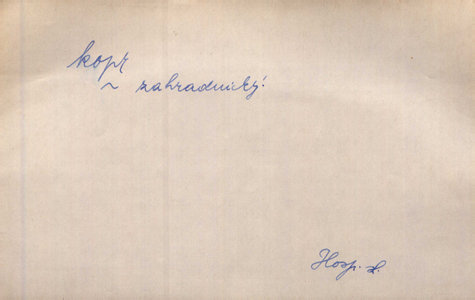 kopr
~ zahradnický.
Hosp. d.